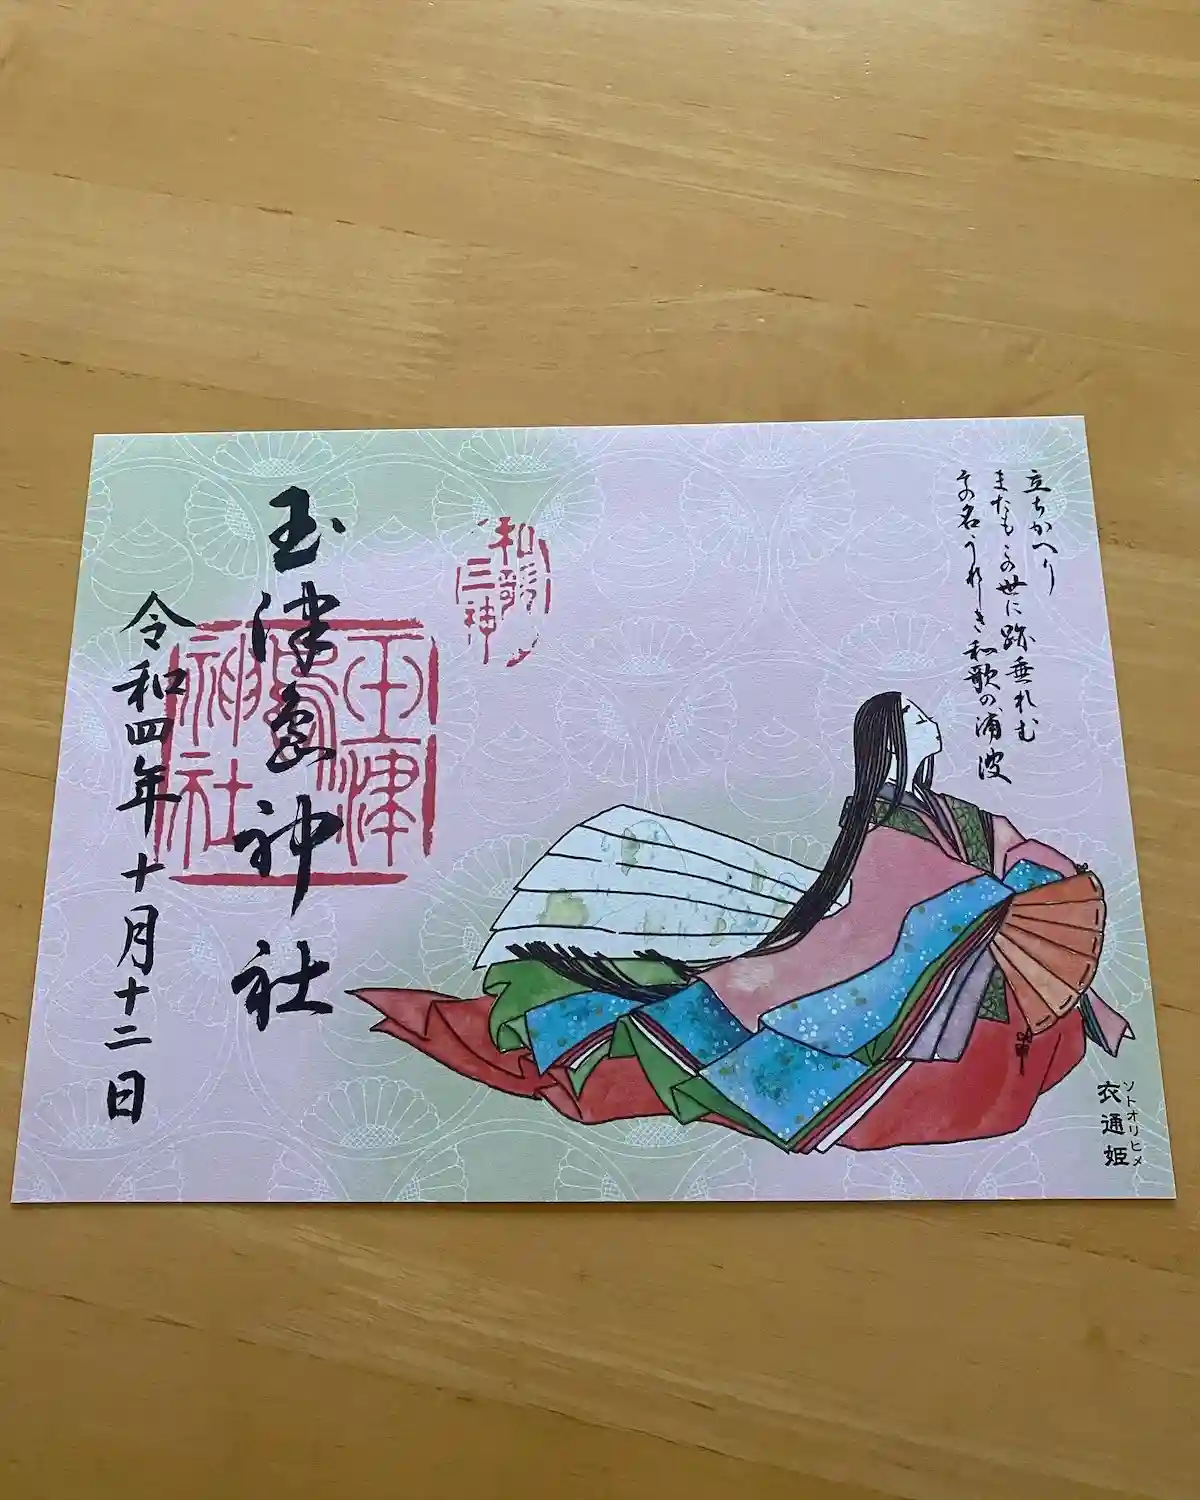 立ちかへり
またもこの世に跡垂れむ
その名うれしき和歌の浦波
ソトオリヒメ
衣通姫
和歌三神
玉津島神社
玉津島神社
令和四年十月十二日